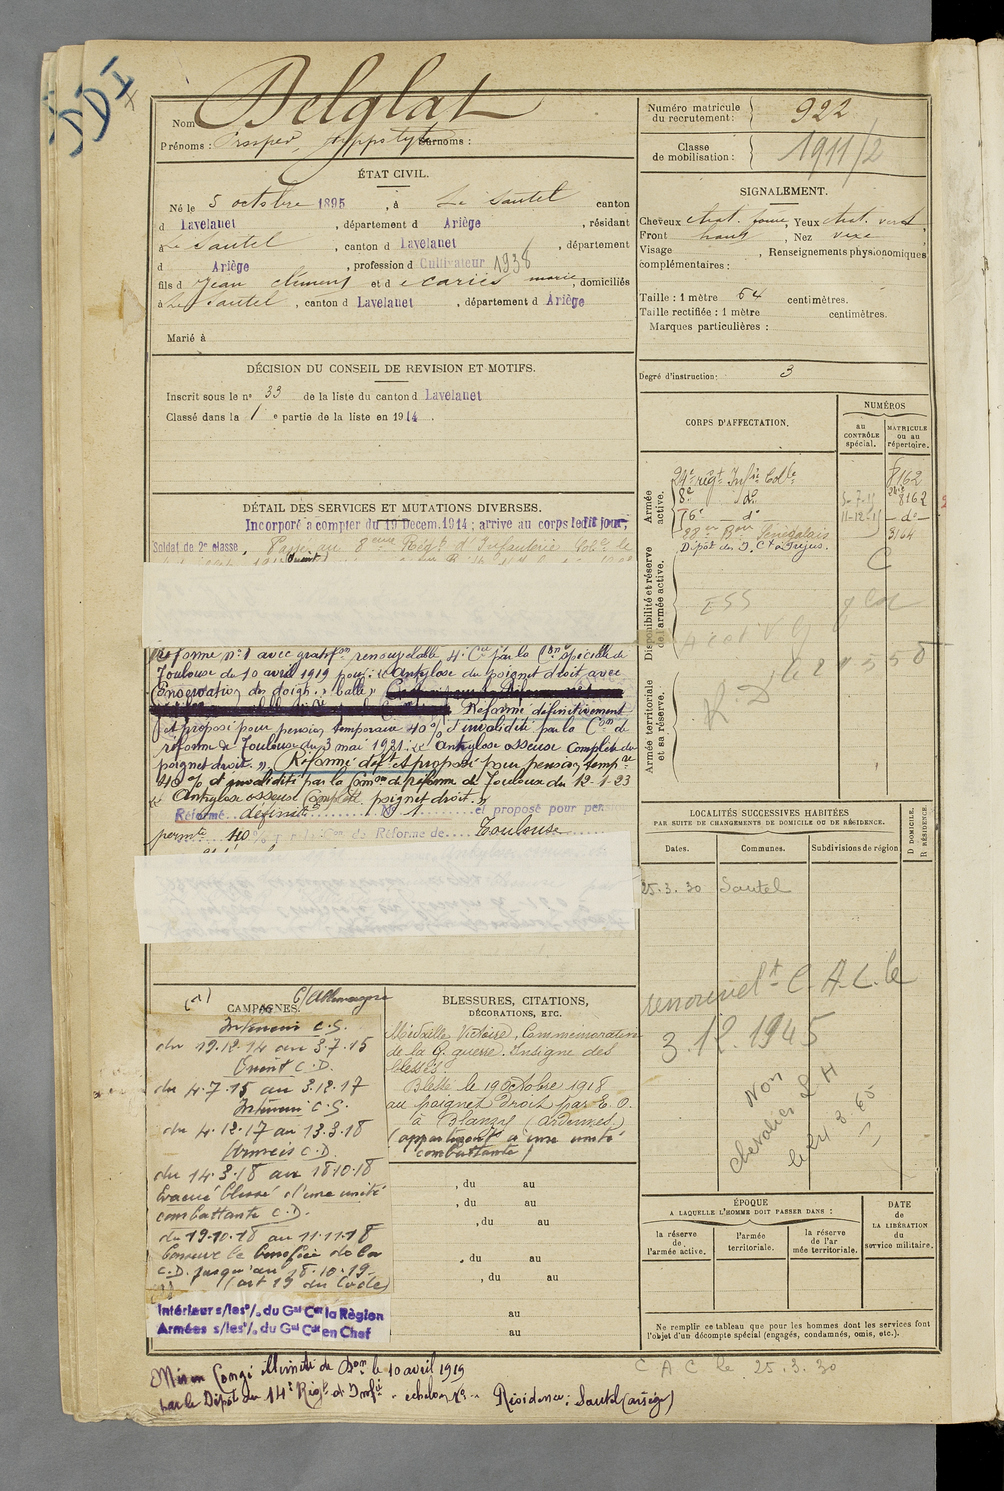 DDI
Nom Delglat
Prénoms : Prosper, Hyppolyte Surnoms :
ÉTAT CIVIL.
Né le 5 octobre 1895, à Le Sautel canton
d Lavelanet, département d Ariège, résidant
à Le Sautel, canton d Lavelanet, département
d Ariège, profession d Cultivateur 1938
fils d Jean Clément et d e Cariés marie, domiciliés
à Le Sautel, canton d Lavelanet, département d Ariège
Marié à
DÉCISION DU CONSEIL DE REVISION ET MOTIFS.
Inscrit sous le nº 33 de la liste du canton d Lavelanet
Classé dans la 1 e partie de la liste en 1914.
DÉTAIL DES SERVICES ET MUTATIONS DIVERSES.
Incorporé à compter du 19 Décem. 1914 ; arrivé au corps ledit jour,
Soldat de 2e classe. Passé au 8eme Régt d'Infanterie Colle le
Réformé nº 1 avec gratifon renouvelable 4e Cie par la Con spéciale de
Toulouse du 10 avril 1919 pour : « Ankylose du poignet droit avec
Conservation des doigts. » balle »
Réformé définitivement
et proposé pour pension temporaire 40% d'invalidité par la Con de
réforme de Toulouse du 3 mai 1921. « Ankylose osseuse complète du
poignet droit. » Réformé déft et proposé pour pension tempre
40% d'invalidité par la Comon de réforme de Toulouse du 12-1-23
« Ankylose osseuse complète poignet droit. »
Réformé définitt Nº 1 et proposé pour pen
permte 40 % Con de Réforme de Toulouse
C/ Allemagne
CAMPAGNES.
Intérieur C.S.
du 19.12.14 au 3.7.15
Orient C.D.
du 4.7.15 au 3.12.17
Intérieur C.S.
du 4.12.17 au 13.3.18
Armées C.D.
du 14.3.18 au 18.10.18
Evacué blessé d'une unité
combattante C.D.
du 19.10.18 au 11.11.18
Conserve le bénéfice de la
C.D. jusqu'au 18.10.19
(art 19 du Code)
Intérieur s/les º/. du Gal Ct la Règion
Armées s/les º/. du Gal Ct en Chef
BLESSURES, CITATIONS,
DÉCORATIONS, ETC.
Médailles Victoire, Commémorative
de la G. guerre. Insigne des
blessés.
Blessé le 19 octobre 1918
au poignet droit par E. O.
à Blanzy (Ardennes)
(appartenant à une unité
combattante)
, du au
, du au
, du au
, du au
, du au
au
au
Mis en Congé illimité de Don le 10 avril 1919
par le Dépôt du 14e Régt d'Infie échelon Nº Résidence : Sautel (Ariège)
Numéro matricule
du recrutement : 922
Classe
de mobilisation : 1911/2
SIGNALEMENT.
Cheveux chat. foncé, Yeux chat. verd.
Front haut, Nez vexe
Visage , Renseignements physionomiques
complémentaires :
Taille : 1 mètre 64 centimètres.
Taille rectifiée : 1 mètre centimètres.
Marques particulières :
Degré d'instruction : 3
CORPS D'AFFECTATION.
NUMÉROS
au
CONTRÔLE
spécial.
MATRICULE
ou au
répertoire.
Armée
active.
24e régt Infie Colle 8162
8e do 5-7-15 8162
76e do 11-12-15 do
88e Bon Sénégalais 3164
Dépôt des I. C. à Fréjus.
Disponibilité et réserve
de l'armée active.
C
ESS
Armée territoriale
et sa réserve.
LOCALITÉS SUCCESSIVES HABITÉES
PAR SUITE DE CHANGEMENTS DE DOMICILE OU DE RÉSIDENCE.
Dates. Communes. Subdivisions de région
D DOMICILE.
R RÉSIDENCE.
25.3.30 Sautel
renouvelt C.A.C. le
3.12.1945
Non
chevalier L H
ÉPOQUE
A LAQUELLE L'HOMME DOIT PASSER DANS :
la réserve
de
l'armée active.
l'armée
territoriale.
la réserve
de l'ar
mée territoriale.
DATE
de
LA LIBÉRATION
du
service militaire.
Ne remplir ce tableau que pour les hommes dont les services font
l'objet d'un décompte spécial (engagés, condamnés, omis, etc.).
C A C le 25.3.30